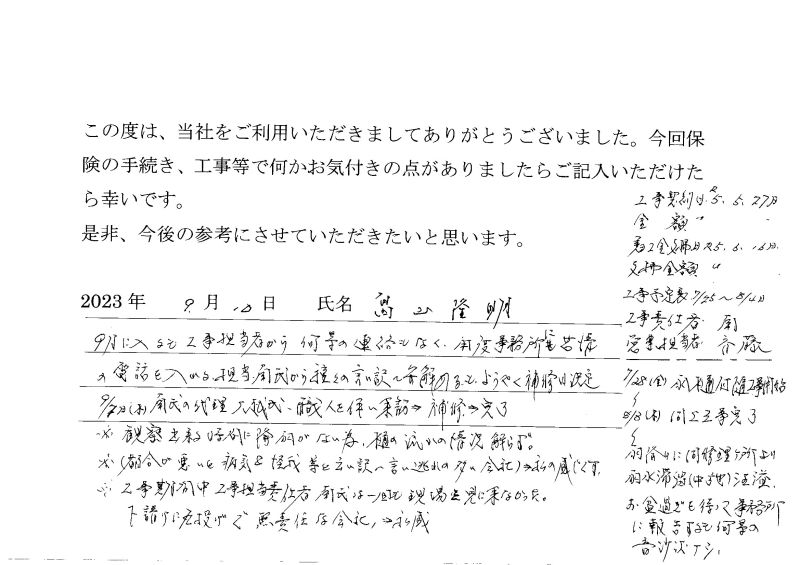 この度は、当社をご利用いただきましてありがとうございました。今回保
険の手続き、工事等で何かお気付きの点がありましたらご記入いただけた
ら幸いです。
是非、今後の参考にさせていただきたいと思います。
2023年 9月10日 氏名 髙山 隆明
9月に入るも工事担当者から何等の連絡もなく、再度事務所に苦情
の電話を入れる。担当南氏から種々の言い訳〜弁解のあと、ようやく補修日決定
南氏の代理 職人を伴い来訪⇒補修⇒完了
※ 観察出来る時刻に降雨がない為、樋の流れの情況解らず。
※ (都合が悪いと病気と怪我等と云い訳〜言い逃れの多い会社)⇒私の感じです。
※ 工事期間中工事担当責任者南氏は一回も現場を見に来なかった。
下請けに丸投げで無責任な会社。⇒私感
工事契約日 R5. 5. 27日
金額 〃
着工金支払日 R5. 6. 16日
支払金額 〃
工事予定表 7/25〜8/4日
工事責任者 南
営業担当者 斉藤
7/28(金) 工事開始
8/3(木) 同上工事完了
雨降りに同修理ヶ所より
雨水滞留
お盆過ぎを待って事務所
に報告するも何等の
音沙汰ナシ。